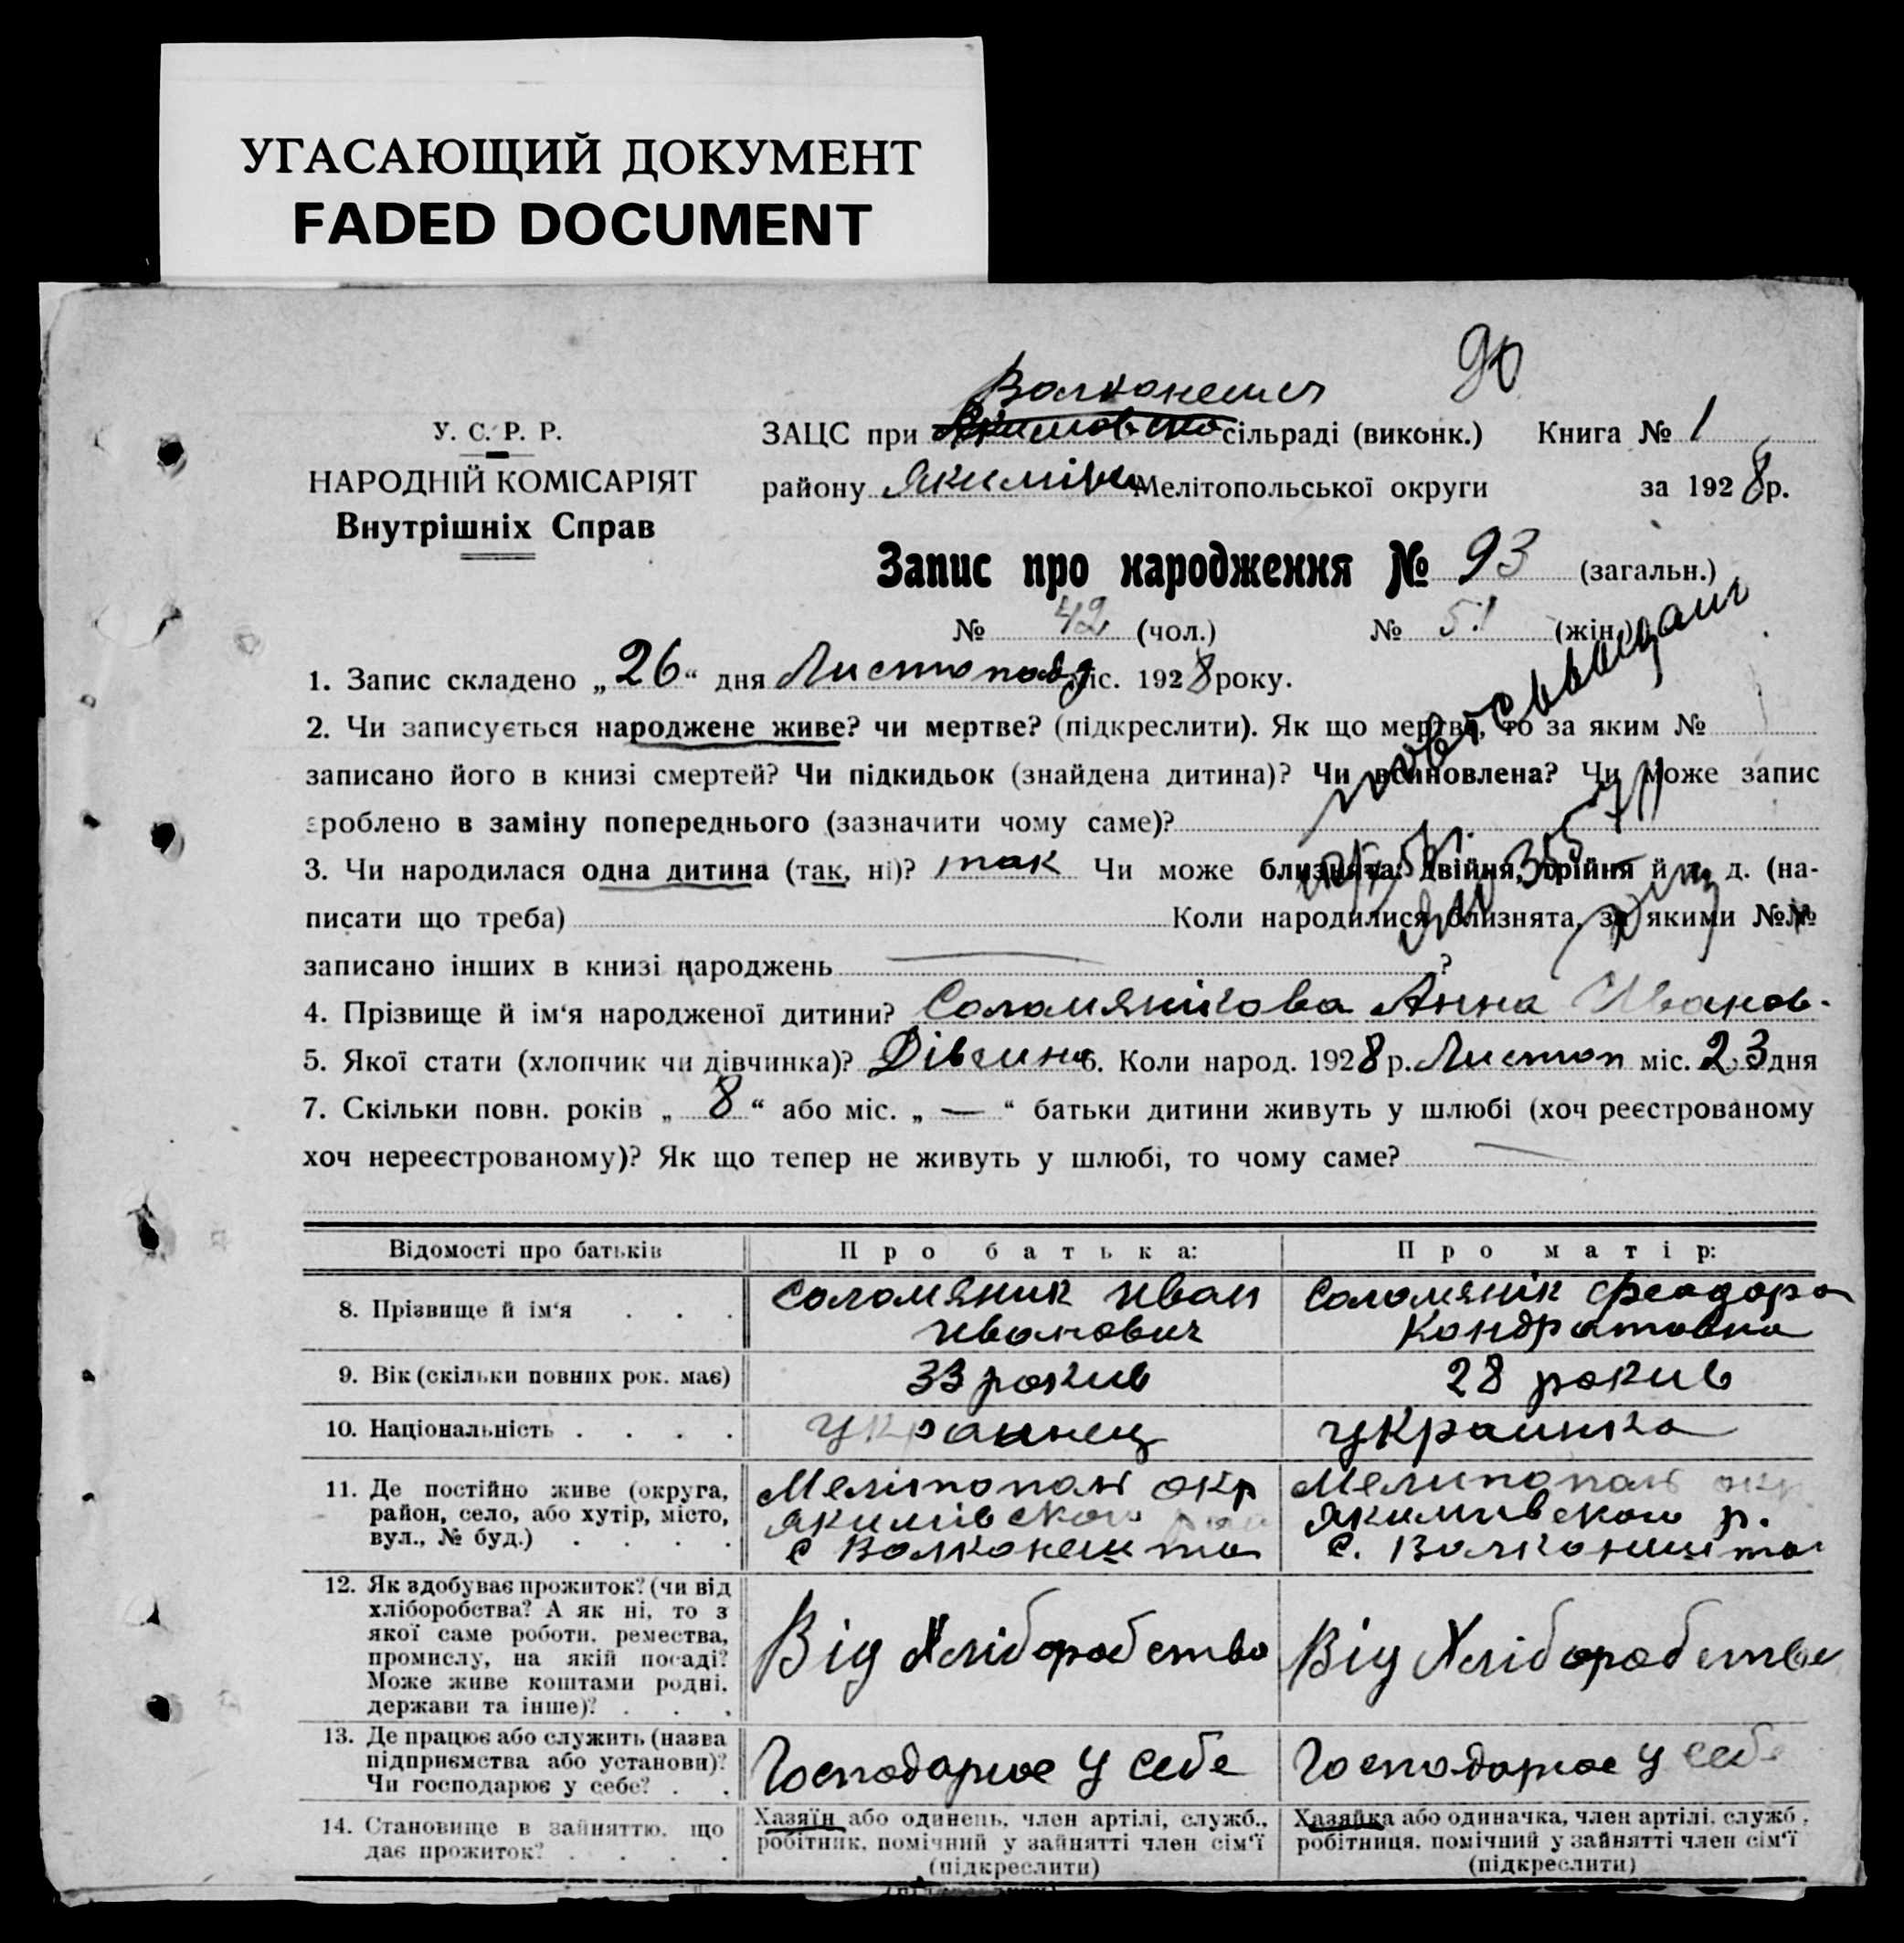 УГАСАЮЩИЙ ДОКУМЕНТ
FADED DOCUMENT
90
Волконешт
У. С. Р. Р.
НАРОДНІЙ КОМІСАРІЯТ
Внутрішніх Справ
ЗАЦС при сільраді (виконк.) Книга № 1
району Якимівськ Мелітопольської округи за 1928 р.
Запис про народження № 93 (загальн.)
№ 42 (чол.) № 51 (жін.)
1. Запис складено „26“ дня Листопад міс. 1928 року.
2. Чи записується народжене живе? чи мертве? (підкреслити). Як що мертве, то за яким №
записано його в книзі смертей? Чи підкидьок (знайдена дитина)? Чи всиновлена? Чи може запис
зроблено в заміну попереднього (зазначити чому саме)?
3. Чи народилася одна дитина (так, ні)? так Чи може близнята: двійня, трійня й т. д. (на-
писати що треба) Коли народилися близнята, за якими №№
записано інших в книзі народжень ?
4. Прізвище й ім‘я народженої дитини? Соломянікова Анна Иванов-
5. Якої стати (хлопчик чи дівчинка)? Дівчина 6. Коли народ. 1928 р. Листоп міс. 23 дня
7. Скільки повн. років „ 8 “ або міс. „ — “ батьки дитини живуть у шлюбі (хоч реєстрованому
хоч нереєстрованому)? Як що тепер не живуть у шлюбі, то чому саме?
Відомості про батьків Про батька: Про матір:
8. Прізвище й ім‘я . . . Соломяник Иван Иванович Соломянік Феодора Кондратовна
9. Вік (скільки повних рок. має) 33 рокив 28 рокив
10. Національність . . . . Украинец Украинка
11. Де постійно живе (округа, район, село, або хутір, місто, вул., № буд.) . . . .
Мелітопол окр Якимівског с Волконешта
Мелитопол окр. Якимивского р. с. Волконешта
12. Як здобуває прожиток? (чи від хліборобства? А як ні, то з якої саме роботи, ремества, промислу, на якій посаді? Може живе коштами родні, держави та інше)? . . .
Від Хліборобства Від Хліборобства
13. Де працює або служить (назва підприємства або установи)? Чи господарює у себе? . .
Господарює у себе Господарює у себе
14. Становище в зайняттю, що дає прожиток? . . . .
Хазяїн або одинець, член артілі, служб., робітник, помічний у зайнятті член сім‘ї (підкреслити)
Хазяйка або одиначка, член артілі, служб., робітниця, помічний у зайнятті член сім‘ї (підкреслити)